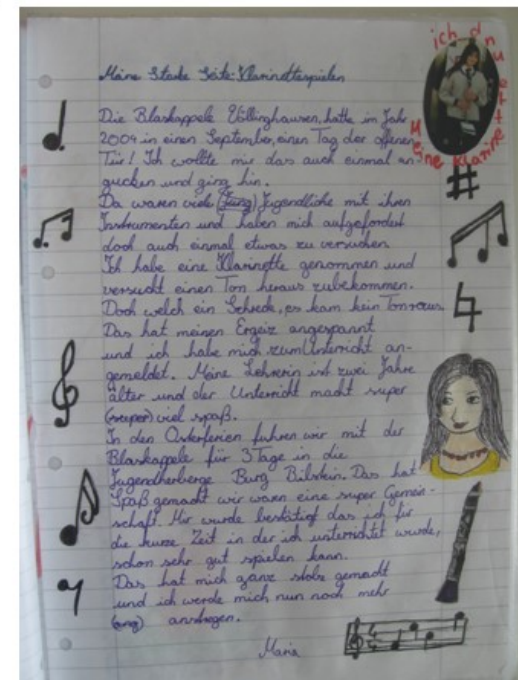 Meine Starke Seite: Klarinettespielen
ich und
meine Klarinette
Die Blaskappele Völlinghausen, hatte im Jahr
2004 in einen September, einen Tag der offenen
Tür! Ich wollte mir das auch einmal an-
gucken und ging hin.
Da waren viele (Jung) Jugendliche mit ihren
Instrumenten und haben mich aufgefordert
doch auch einmal etwas zu versuchen.
Ich habe eine Klarinette genommen und
versucht einen Ton heraus zubekommen.
Doch welch ein Schreck, es kam kein Ton raus.
Das hat meinen Ergeiz angespannt
und ich habe mich zum Unterricht an-
gemeldet. Meine Lehrerin ist zwei Jahre
älter und der Unterricht macht super
(super) viel spaß.
In den Osterferien fuhren wir mit der
Blaskappele für 3 Tage in die
Jugendherberge Burg Bilstein. Das hat
Spaß gemacht wir waren eine super Gemein-
schaft. Mir wurde bestätigt das ich für
die kurze Zeit in der ich unterrichtet wurde,
schon sehr gut spielen kann.
Das hat mich ganz stolz gemacht
und ich werde mich nun noch mehr
(ang) anstregen.
Maria